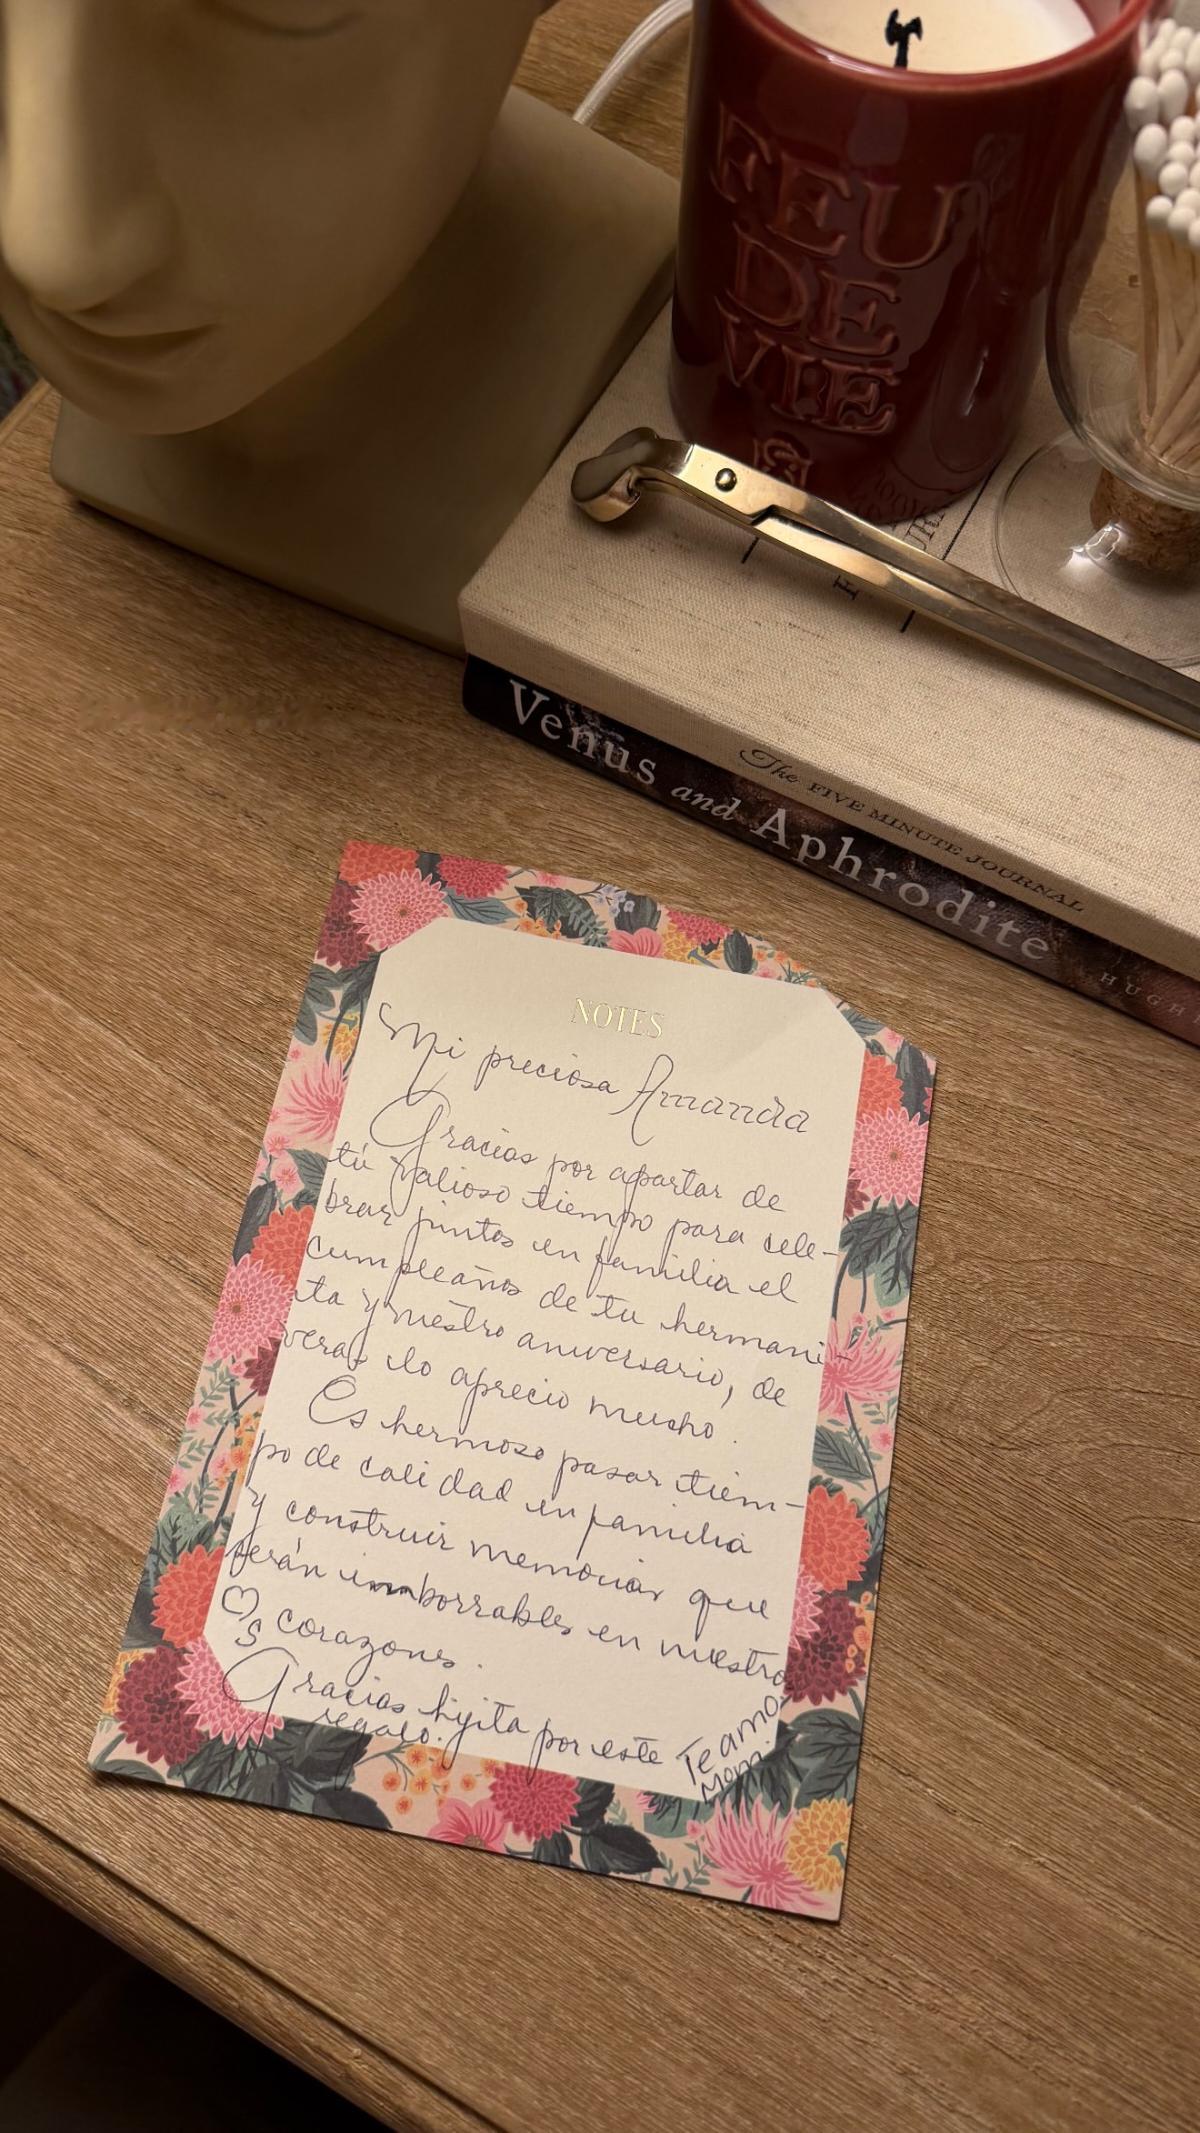 FEU
DE
VIE
Venus and Aphrodite
HUGH
The FIVE MINUTE JOURNAL
NOTES
Mi preciosa Amanda
Gracias por apartar de
tú valioso tiempo para cele-
brar juntos en familia el
cumpleaños de tu hermani-
ta y nuestro aniversario, de
veras lo aprecio mucho.
Es hermoso pasar tiem-
po de calidad en familia
y construir memorias que
serán imborrables en nuestro
♡s corazones.
Gracias hijita por este
regalo.
Te amo
Mom.